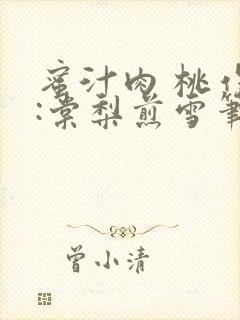 蜜汁肉桃
:棠梨煎雪筆
曾小清